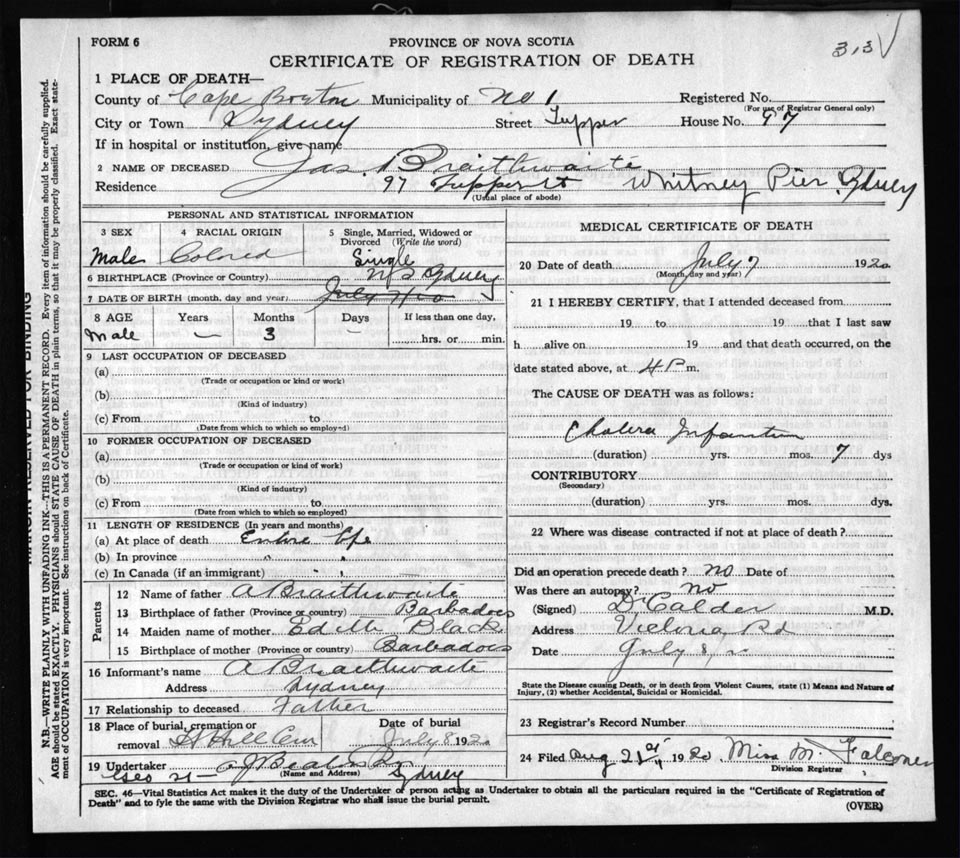 FORM 6
PROVINCE OF NOVA SCOTIA
3,3
CERTIFICATE OF REGISTRATION OF DEATH
1 PLACE OF DEATH—
County of Cape Breton Municipality of No 1 Registered No.
(For use of Registrar General only)
City or Town Sydney Street Tupper House No. 97
If in hospital or institution, give name
2 NAME OF DECEASED Jas Braithwaite
Residence 97 Tupper St Whitney Pier, Sydney
(Usual place of abode)
PERSONAL AND STATISTICAL INFORMATION
3 SEX 4 RACIAL ORIGIN 5 Single, Married, Widowed or Divorced (Write the word)
Male Colored Single
6 BIRTHPLACE (Province or Country) NS Sydney
7 DATE OF BIRTH (month, day and year) July
8 AGE Years Months Days If less than one day,
Male — 3 — hrs. or min.
9 LAST OCCUPATION OF DECEASED
(a)
(Trade or occupation or kind or work)
(b)
(Kind of industry)
(c) From to
(Date from which to which so employed)
10 FORMER OCCUPATION OF DECEASED
(a)
(Trade or occupation or kind of work)
(b)
(Kind of industry)
(c) From to
(Date from which to which so employed)
11 LENGTH OF RESIDENCE (In years and months)
(a) At place of death Entire life
(b) In province "
(c) In Canada (if an immigrant) " —
Parents
12 Name of father A Braithwaite
13 Birthplace of father (Province or country) Barbadoes
14 Maiden name of mother Edith Black
15 Birthplace of mother (Province or country) Barbadoes
16 Informant's name A Braithwaite
Address Sydney
17 Relationship to deceased Father
18 Place of burial, cremation or removal Date of burial
H Hill Cem July 8 1920
19 Undertaker A J Beaton Sydney
(Name and Address)
MEDICAL CERTIFICATE OF DEATH
20 Date of death July 7 1920
(Month, day and year)
21 I HEREBY CERTIFY, that I attended deceased from
19 to 19 that I last saw
h alive on 19 and that death occurred, on the
date stated above, at 4 P m.
The CAUSE OF DEATH was as follows:
Cholera Infantum
(duration) yrs. mos. 7 dys
CONTRIBUTORY
(Secondary)
(duration) yrs. mos. dys.
22 Where was disease contracted if not at place of death?
Did an operation precede death? no Date of
Was there an autopsy? no
(Signed) Dr Calder M.D.
Address Victoria Rd
Date July 8/20
State the Disease causing Death, or in death from Violent Causes, state (1) Means and Nature of
Injury, (2) whether Accidental, Suicidal or Homicidal.
23 Registrar's Record Number
24 Filed Aug 21st 1920 Miss M. Falconer
Division Registrar
SEC. 46—Vital Statistics Act makes it the duty of the Undertaker or person acting as Undertaker to obtain all the particulars required in the "Certificate of Registration of
Death" and to fyle the same with the Division Registrar who shall issue the burial permit.
(OVER)
MARGIN RESERVED FOR BINDING
N.B.—WRITE PLAINLY WITH UNFADING INK—THIS IS A PERMANENT RECORD. Every item of information should be carefully supplied.
AGE should be stated EXACTLY. PHYSICIANS should STATE CAUSE OF DEATH in plain terms, so that it may be properly classified. Exact state-
ment of OCCUPATION is very important. See instructions on back of Certificate.